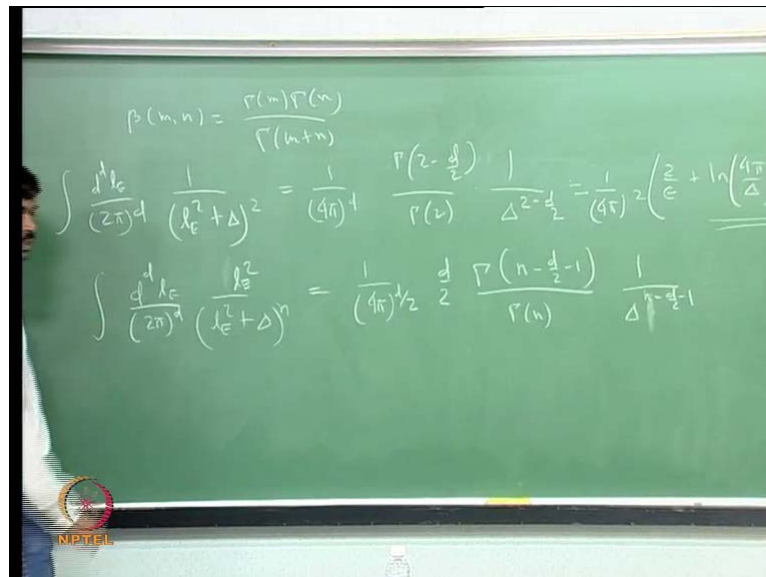 β(m,n) = Γ(m)Γ(n) / Γ(m+n)
∫ d^d l_E / (2π)^d 1 / (l_E^2 + Δ)^2 = 1 / (4π)^d Γ(2 - d/2) / Γ(2) · 1 / Δ^{2 - d/2} = 1 / (4π)^2 (2/ε + ln(4π/Δ
∫ d^d l_E / (2π)^d l_E^2 / (l_E^2 + Δ)^n = 1 / (4π)^{d/2} d/2 Γ(n - d/2 - 1) / Γ(n) 1 / Δ^{n - d/2 - 1}
NPTEL